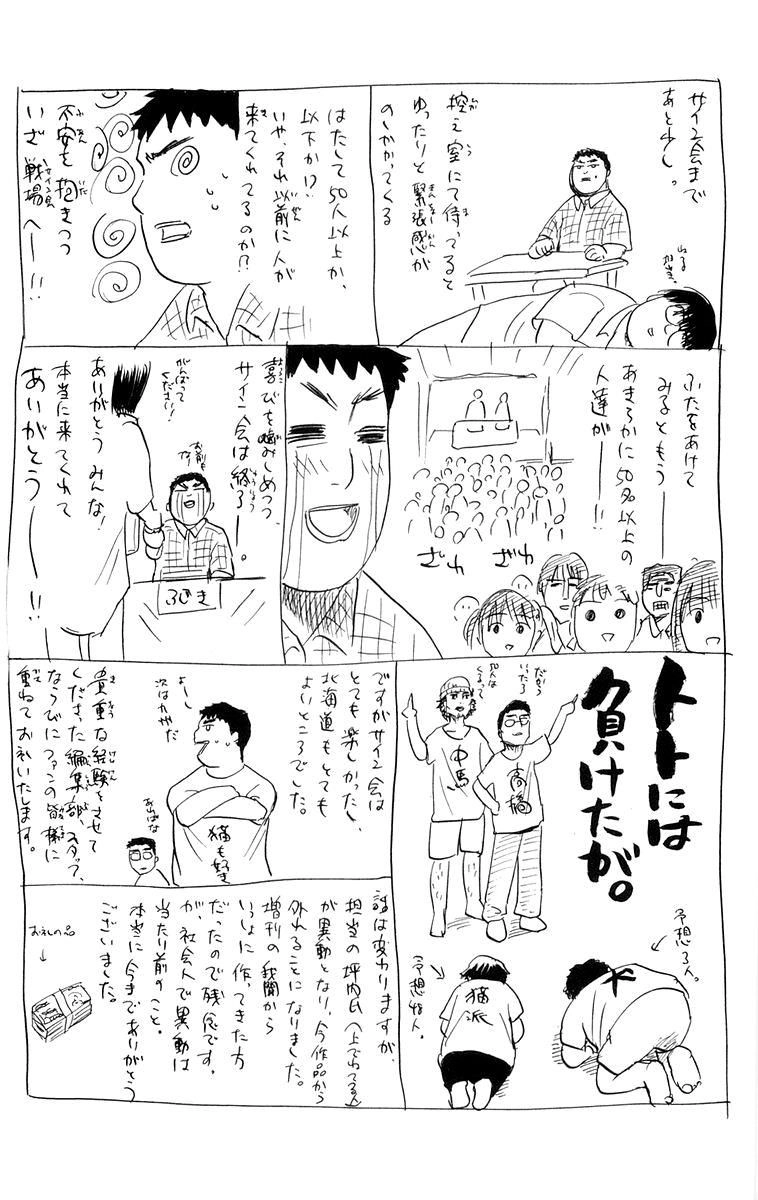 サイン会まで
あと少し。
控え室にて待ってると
ゆったりと緊張感が
のしかかってくる
ねる
担当。
はたして50人以上か、
以下か!?
いや、それ以前に人が
来てくれてるのか!?
不安を抱きつつ
いざ戦場へー!!
サイン会
ふたをあけて
みるともう――
あきらかに50名以上の
人達が――!!
ざわ
ざわ
喜びを噛みしめつつ、
サイン会は終了――。
がんばって
ください!
お前も
な
ありがとうみんな!
本当に来てくれて
ありがとう――!!
ふじき
トトには
負けたが。
だから
いったろ
みんな
くるって
中馬
高橋
予想3人。
猫派
ですがサイン会は
とても楽しかったし、
北海道もとても
よいところでした。
よーし
次はカゲだ
あんばな
猫も好き
貴重な経験をさせて
くださった編集部、スタッフ、
ならびにファンの皆様に
重ねてお礼いたします。
話は変わりますが、
担当の坪内氏(上でねてる人)
が異動となり、今作品から
外れることになりました。
増刊の我聞から
いっしょに作ってきた方
だったので残念です。
が、社会人で異動は
当たり前のこと。
本当に今までありがとう
ございました。
お礼の品